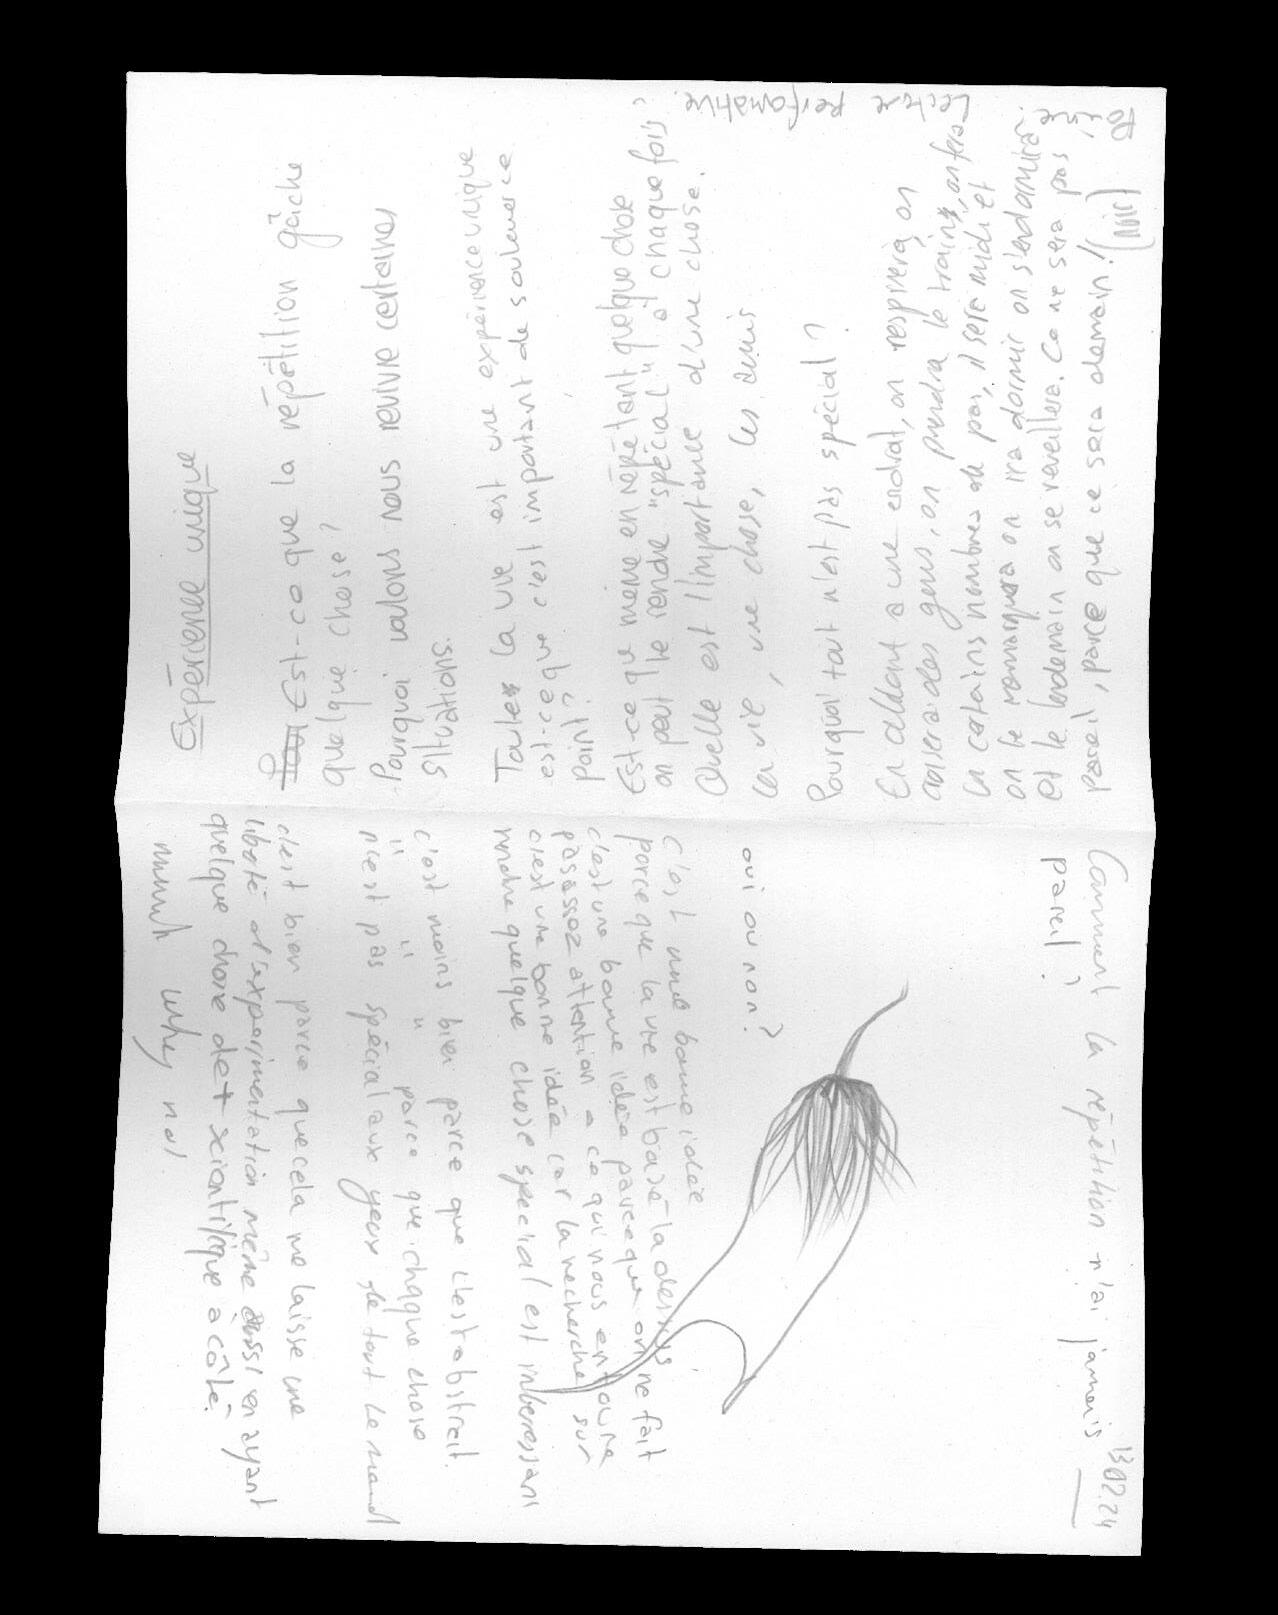 Expérience unique
Est-ce que la répétition gâche
quelque chose?
Pourquoi voulons nous revivre certaines
situations.
Toutes la vie est une expérience unique
est-ce que c'est important de souleverce
point?
Est ce que même en répétant quelque chose
on peut le rendre "spécial" à chaque fois?
Quelle est l'importance d'une chose.
La vie, une chose, les amis
Pourquoi tout n'est pas spécial?
En allant a une endroit, on respirera, on
croisera des gens, on prendra le train, on fera
un certains nombres de pas, il sera midi et
on le remarquera on ira dormir on s'endormira.
et le lendemain on se reveillera. Ce ne sera pas
pareil, parce que ce sera demain! (nuit)
Lecture performative.
13.02.24
Comment la répétition n'ai jamais
pareil?
oui ou non?
c'est une bonne idée
parce que la vie est basé la dessus
c'est une bonne idée parce que on ne fait
pas assez attention a ce qui nous entoure
c'est une bonne idée car la recherche sur
rendre quelque chose special est interessant
c'est moins bien parce que c'est abstrait.
" " " parce que chaque chose
n'est pas spécial aux yeux de tout le mond
c'est bien parce que cela me laisse une
liberté d'experimentation même aussi en ayant
quelque chose de + scientifique a côté.
mmmh why not